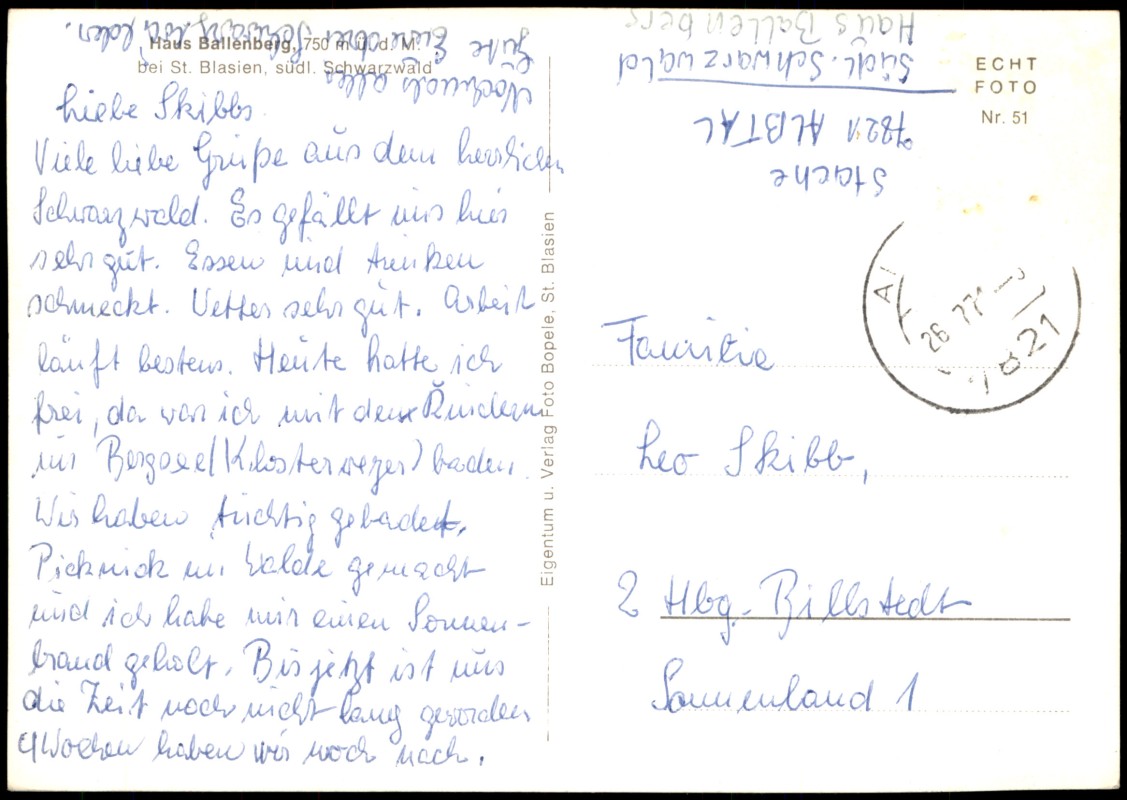 Haus Ballenberg, 750 m ü. d. M.
bei St. Blasien, südl. Schwarzwald
Liebe Skibbs
Viele liebe Grüße aus dem herrlichen
Schwarzwald. Es gefällt uns hier
sehr gut. Essen und trinken
schmeckt. Wetter sehr gut. Arbeit
läuft bestens. Heute hatte ich
frei, da war ich mit den Kindern
im Bergsee (Klosterweyer) baden.
Wir haben tüchtig gebadet,
Picknick im Walde gemacht
und ich habe mir einen Sonnen-
brand geholt. Bis jetzt ist uns
die Zeit noch nicht lang geworden
4 Wochen haben wir noch nach.
Nochmals alles
Gute Eure
Eigentum u. Verlag Foto Bopele, St. Blasien
ECHT
FOTO
Nr. 51
Stache
7821 ALBTAL
Südl. Schwarzwald
Haus Ballenberg
Al
26 77
7821
Familie
Leo Skibb,
2 Hbg. Billstedt
Sonnenland 1